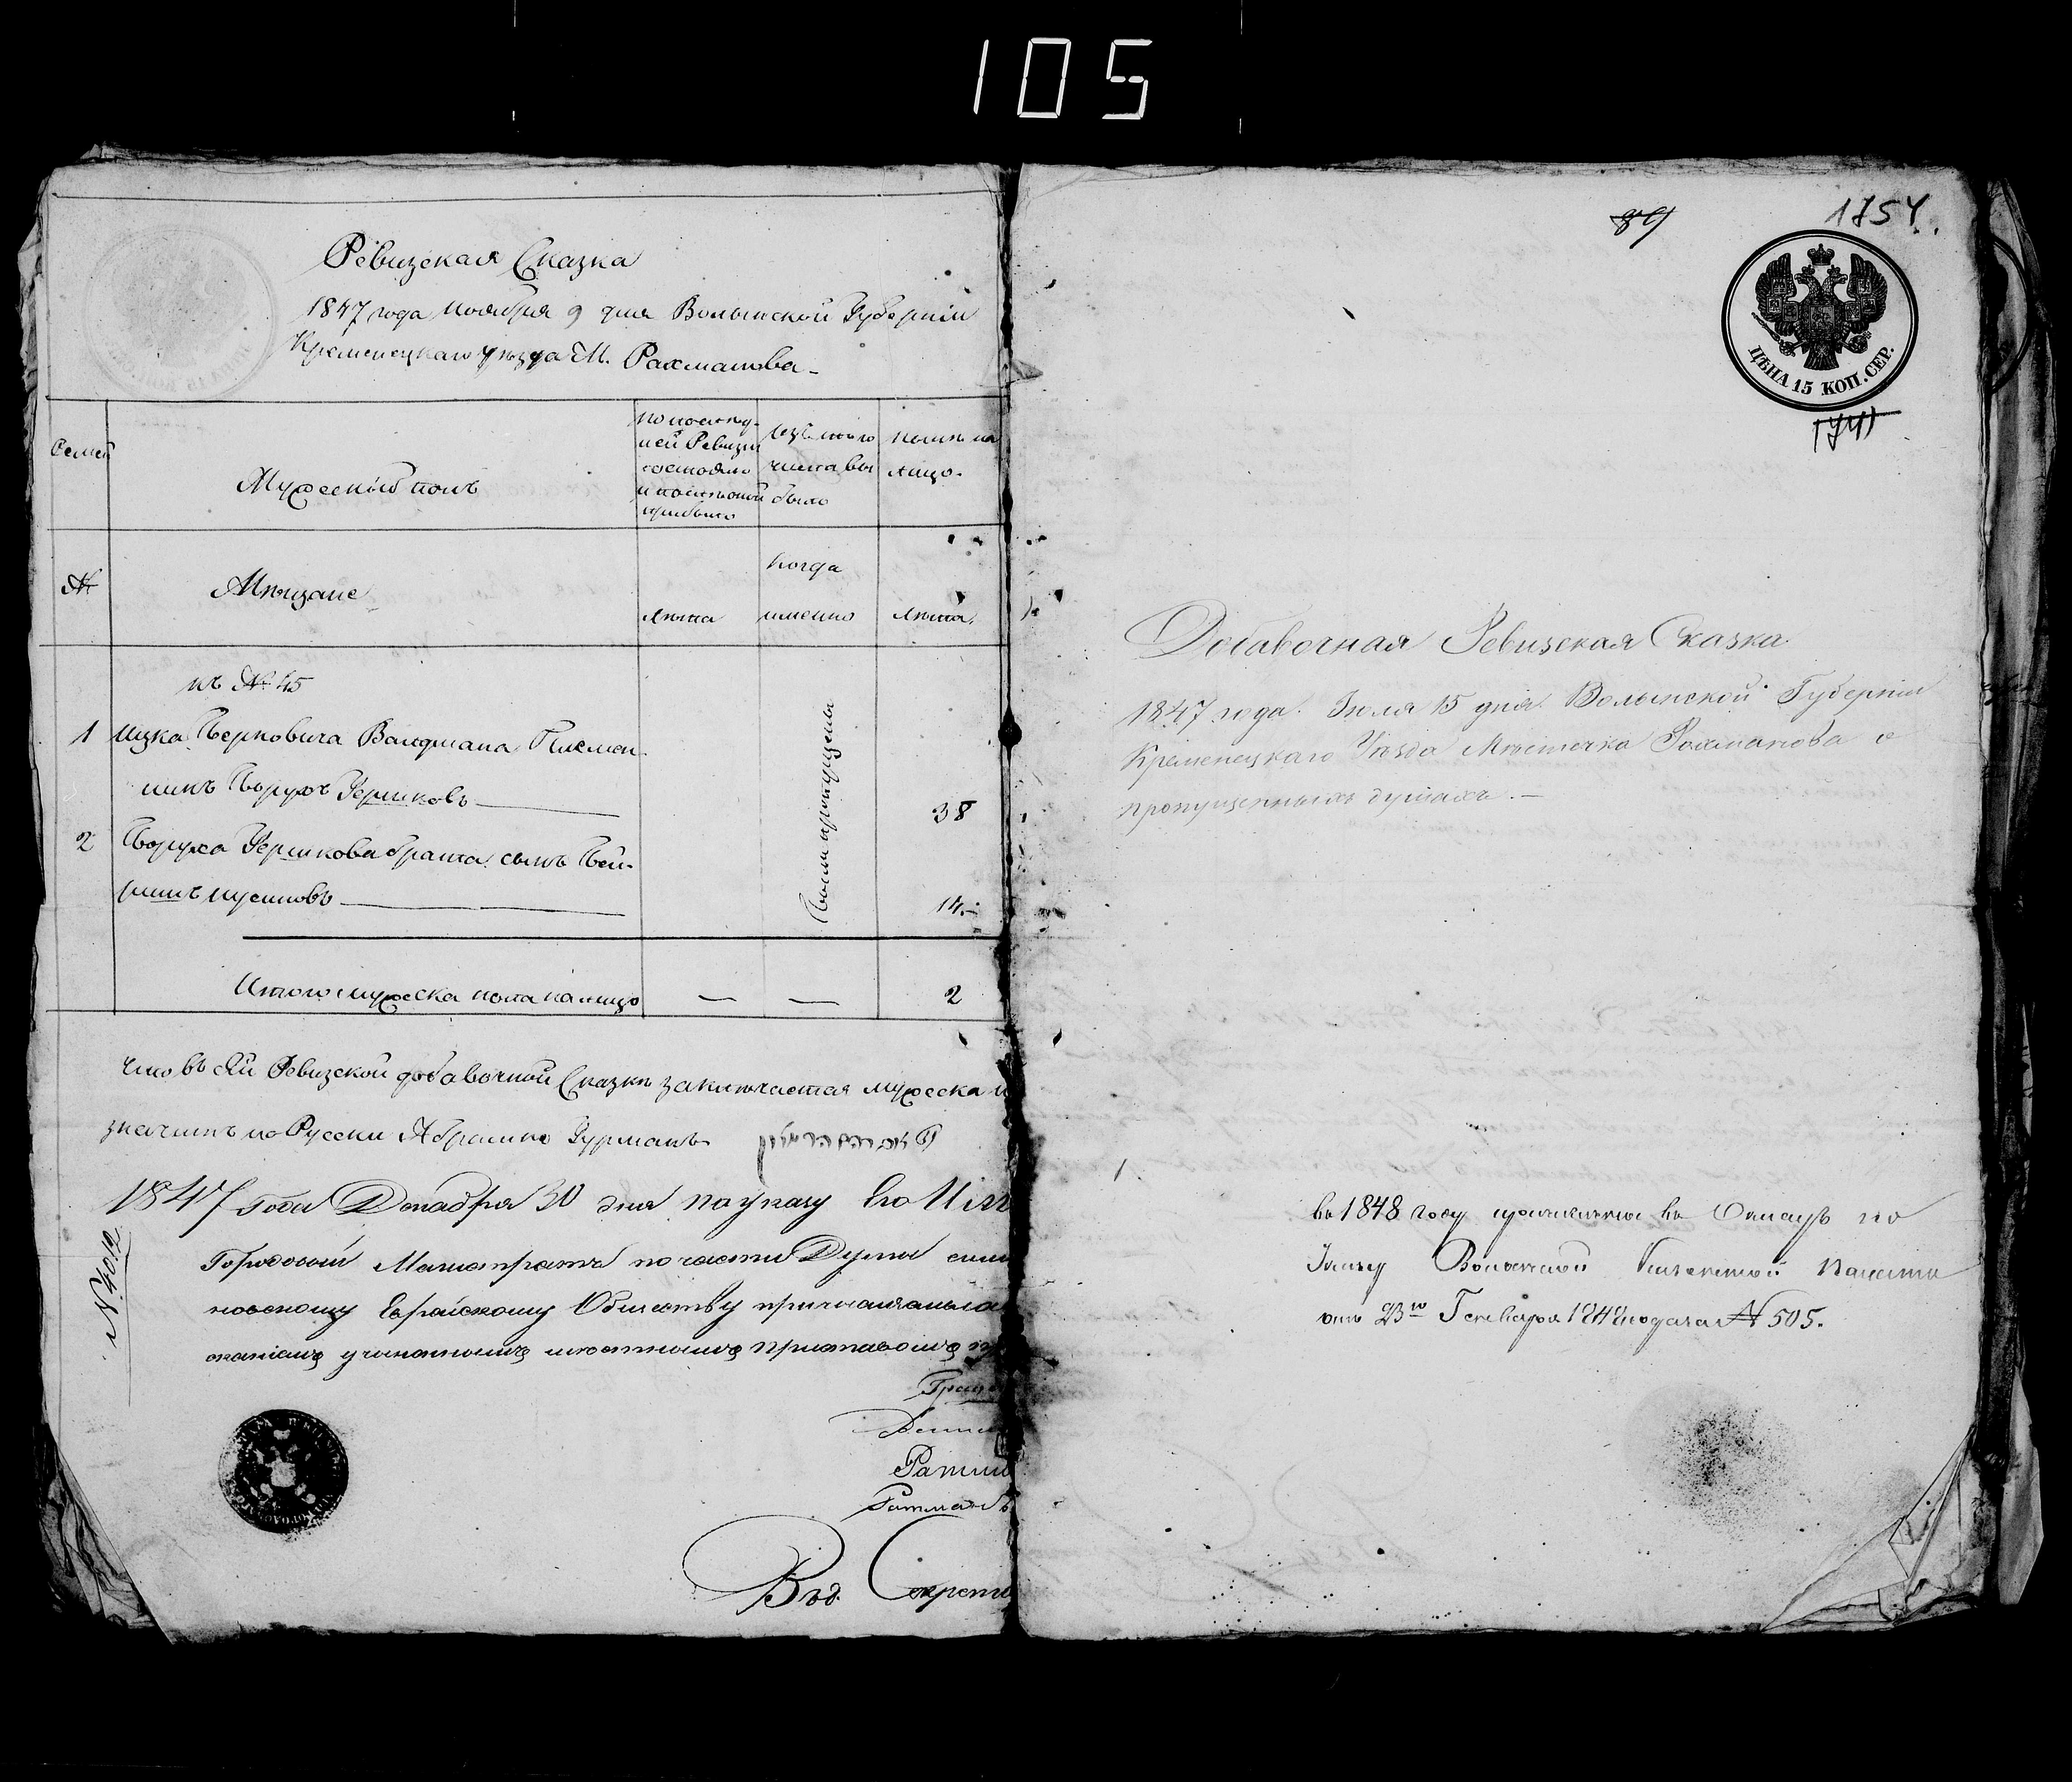 105
Ревизская Сказка
1847 года Ноября 9 дня Волынской Губернiи
Кременецкаго уѣзда М. Рахманова
Семей
Мужескiй полъ
По послѣд-
ней Ревизiи
состояло
и послѣ оной
прибыло
Изъ того
числа вы
было
Нынѣ на
лицо.
№
Мѣщане
Лѣта
Когда
именно
Лѣта.
къ № 45
1 Ицка Берковича Вальдмана Племен-
никъ Борухъ Гершковъ 38
2 Боруха Гершкова брата сынъ Бей-
14.
Были пропущены
Итого мужеска пола на лицо — — 2
Что въ сей Ревизской добавочной Сказкѣ заключается мужеска
значитъ по Русски Абрамко Гурманъ
1847 Года Декабря 30 дня по указу Его
Городовый Магистратъ по части Думы
Еврейскому Обществу
№ 4012
Ратманъ
Секрет
89
1754.
ЦѢНА 15 КОП. СЕР.
Добавочная Ревизская Сказка
1847 года. Iюля 15 дня. Волынской Губернiи
Кременецкаго Уѣзда Мѣстечка Рахманова о
пропущенныхъ душахъ.
въ 1848 году причислены въ Окладъ по
Указу Волынской Казенной Палаты
отъ 23го Генваря 1848 года за № 505.